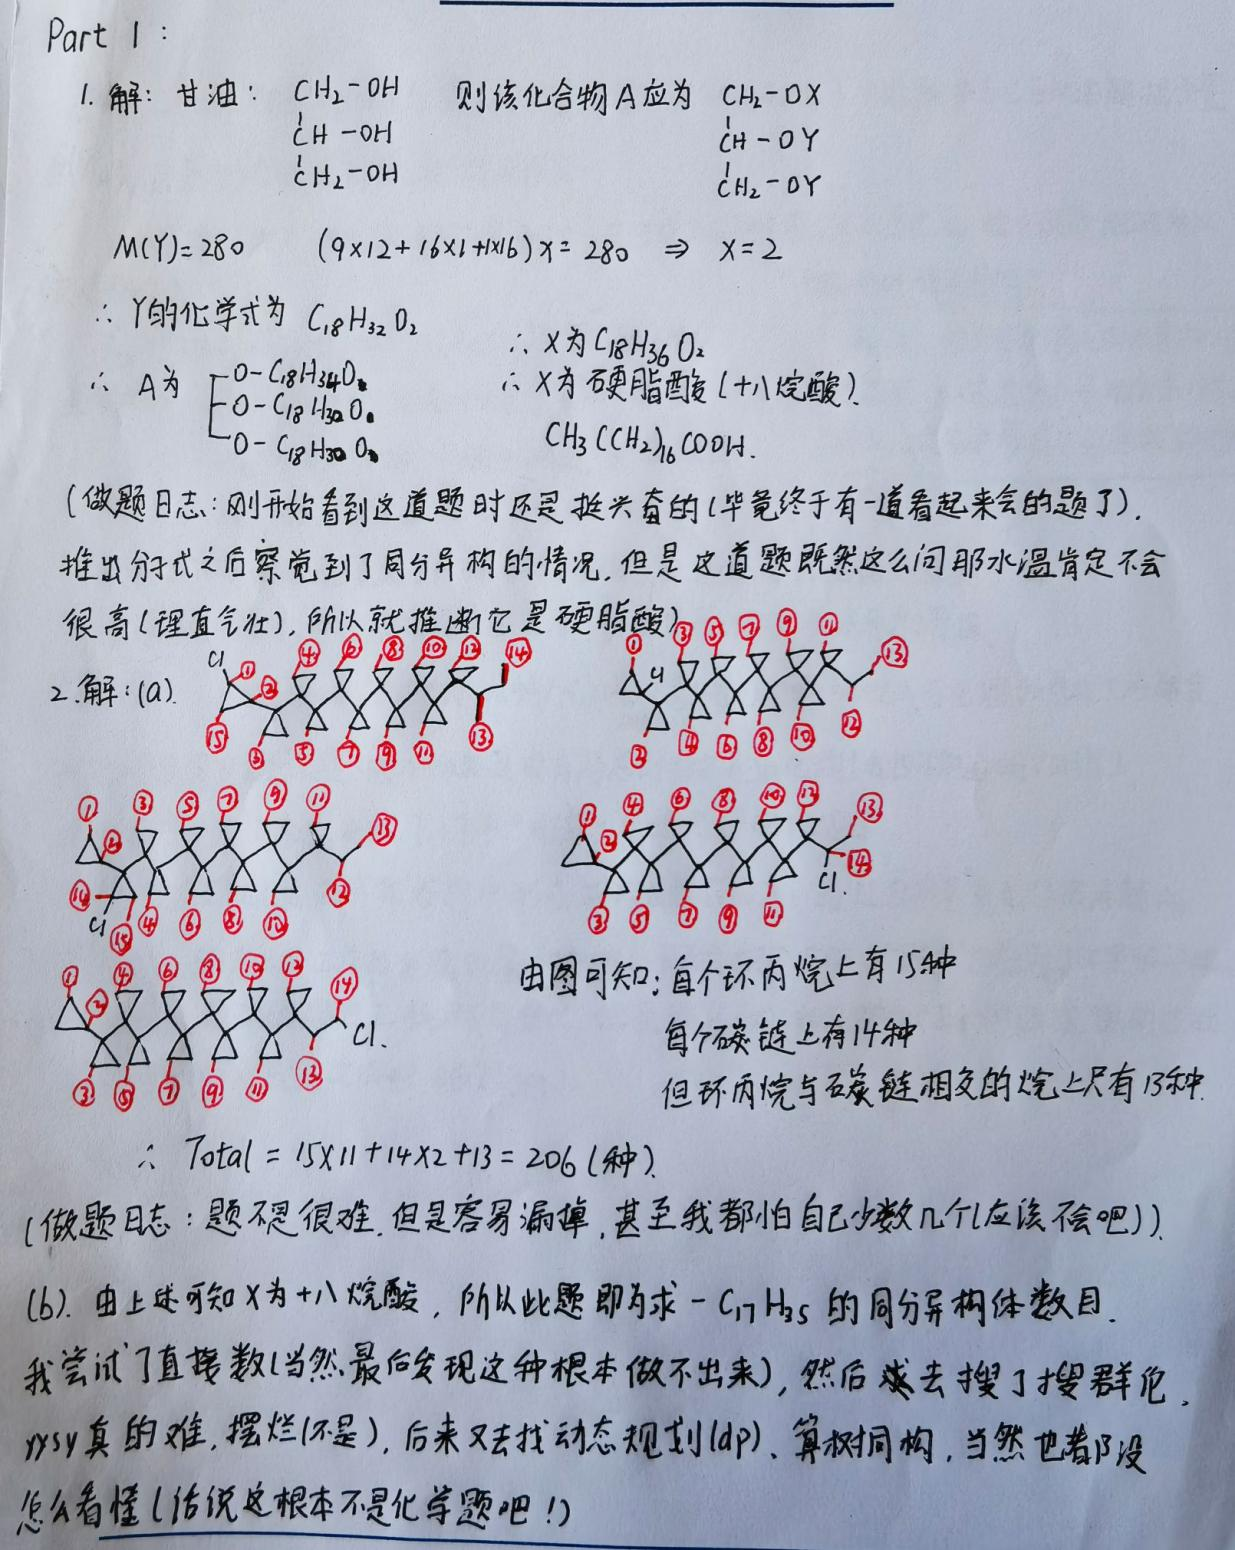 Part 1：
1. 解：甘油： CH₂-OH 则该化合物A应为 CH₂-OX
CH-OH CH-OY
CH₂-OH CH₂-OY
M(Y)=280 (9×12+16×1+1×16)x=280 ⇒ x=2
∴ Y的化学式为 C₁₈H₃₂O₂
∴ X为C₁₈H₃₆O₂
∴ A为 O-C₁₈H₃₄O
O-C₁₈H₃₀O
O-C₁₈H₃₀O
∴ X为硬脂酸(十八烷酸).
CH₃(CH₂)₁₆COOH.
(做题日志：刚开始看到这道题时还是挺兴奋的(毕竟终于有一道看起来会的题了).
推出分子式之后察觉到了同分异构的情况，但是这道题既然这么问那水温肯定不会
很高(理直气壮)，所以就推断它是硬脂酸)
2.解：(a).
Cl ① ② ④ ⑥ ⑧ ⑩ ⑫ ⑭
⑮ ③ ⑤ ⑦ ⑨ ⑪ ⑬
① Cl ③ ⑤ ⑦ ⑨ ⑪ ⑬
② ④ ⑥ ⑧ ⑩ ⑫
① ② ③ ⑤ ⑦ ⑨ ⑪ ⑬
⑭ Cl ⑮ ④ ⑥ ⑧ ⑩ ⑫
① ② ④ ⑥ ⑧ ⑩ ⑫ ⑬
③ ⑤ ⑦ ⑨ ⑪ Cl. ⑭
① ② ④ ⑥ ⑧ ⑩ ⑫ ⑭
③ ⑤ ⑦ ⑨ ⑪ ⑬ Cl.
由图可知：每个环丙烷上有15种
每个碳链上有14种
但环丙烷与碳链相交的烷上只有13种.
∴ Total = 15×11+14×2+13=206(种).
(做题日志：题不是很难，但是容易漏掉，甚至我都怕自己少数几个(应该不会吧)).
(b). 由上述可知X为十八烷酸，所以此题即为求-C₁₇H₃₅的同分异构体数目.
我尝试了直接数(当然最后发现这种根本做不出来)，然后去搜了搜群论，
yysy真的难，摆烂(不是)，后来又去找动态规划(dp)、算树同构，当然也都没
怎么看懂(话说这根本不是化学题吧！)